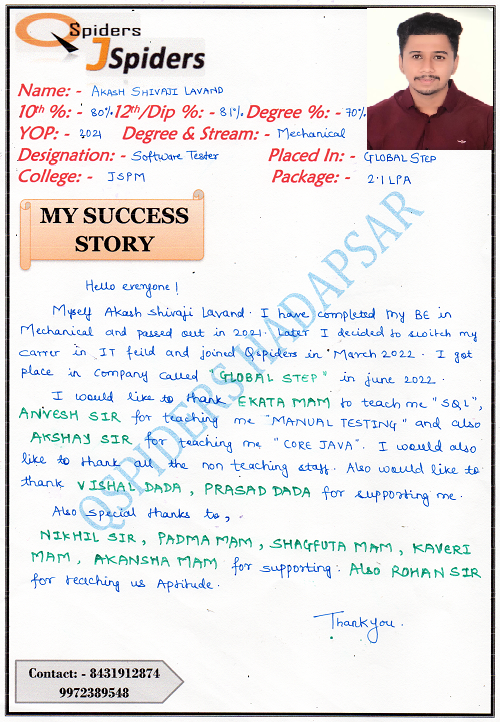 Q Spiders
JSpiders
Name: - Akash Shivaji Lavand
10th %: - 80%. 12th/Dip %: - 81%. Degree %: - 70%
YOP: - 2021 Degree & Stream: - Mechanical
Designation: - Software Tester Placed In: - GLOBAL STEP
College: - JSPM Package: - 2.1 LPA
MY SUCCESS
STORY
Hello everyone!
Myself Akash Shivaji Lavand. I have completed my BE in
Mechanical and passed out in 2021. Later I decided to switch my
carrer in IT feild and joined Qspiders in March 2022. I got
place in company called "GLOBAL STEP" in june 2022.
I would like to thank EKATA MAM to teach me "SQL",
ANIVESH SIR for teaching me "MANUAL TESTING" and also
AKSHAY SIR for teaching me "CORE JAVA". I would also
like to thank all the non teaching staff. Also would like to
thank VISHAL DADA, PRASAD DADA for supporting me.
Also special thanks to,
NIKHIL SIR, PADMA MAM, SHAGFUTA MAM, KAVERI
MAM, AKANSHA MAM for supporting. Also ROHAN SIR
for teaching us Aptitude.
Thank you.
QSPIDERS HADAPSAR
Contact: - 8431912874
9972389548